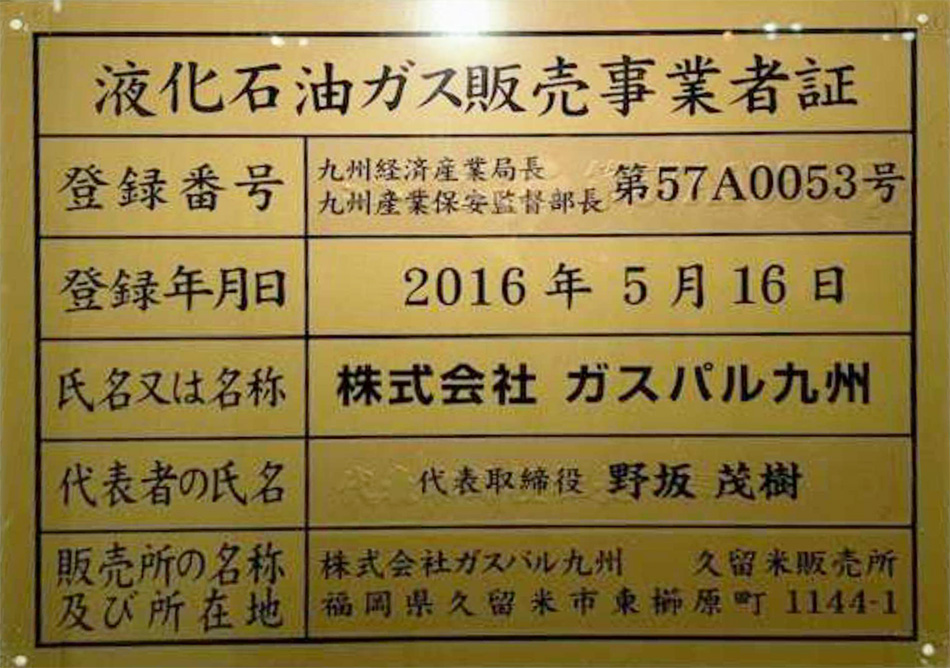 液化石油ガス販売事業者証
登録番号 九州経済産業局長 九州産業保安監督部長 第57A0053号
登録年月日 2016年5月16日
氏名又は名称 株式会社 ガスパル九州
代表者の氏名 代表取締役 野坂 茂樹
販売所の名称 株式会社ガスパル九州 久留米販売所
及び所在地 福岡県久留米市東櫛原町 1144-1